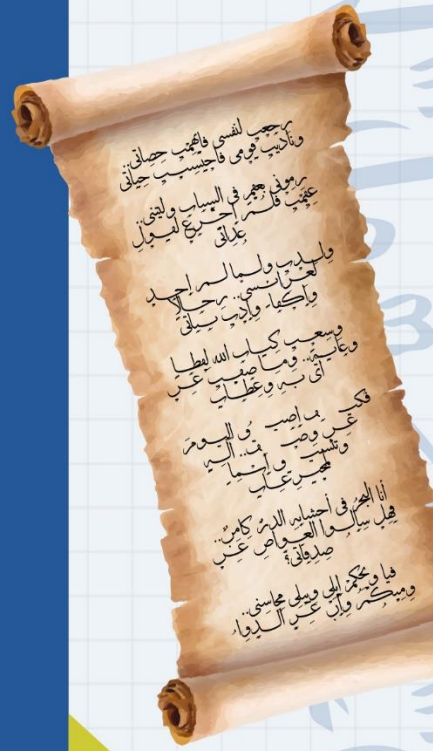 رجعت لنفسي فاتهمت حصاتي..
وناديت قومي فاحتسبت حياتي
رموني بعقم في الشباب وليتني..
عقمت فلم اجزع لقول
عداتي
ولدت ولما لم اجد
لعرائسي.. رجالا
واكفاء وادت بناتي
وسعت كتاب الله لفظا
وغاية.. وما ضقت عن
آي به وعظات
اليوم
عن
أنا البحر في أحشائه الدر كامن..
فهل سألوا الغواص عن
صدفاتي؟
فيا ويحكم ابلى وتبلى محاسني..
ومنكم وإن عز الدواء